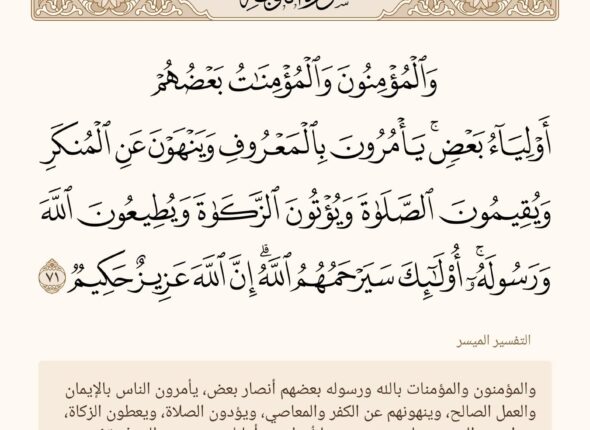 وَٱلْمُؤْمِنُونَ وَٱلْمُؤْمِنَٰتُ بَعْضُهُمْ
أَوْلِيَآءُ بَعْضٍۚ يَأْمُرُونَ بِٱلْمَعْرُوفِ وَيَنْهَوْنَ عَنِ ٱلْمُنكَرِ
وَيُقِيمُونَ ٱلصَّلَوٰةَ وَيُؤْتُونَ ٱلزَّكَوٰةَ وَيُطِيعُونَ ٱللَّهَ
وَرَسُولَهُۥٓۚ أُوْلَٰٓئِكَ سَيَرْحَمُهُمُ ٱللَّهُۗ إِنَّ ٱللَّهَ عَزِيزٌ حَكِيمٌ ٧١
التفسير الميسر
والمؤمنون والمؤمنات بالله ورسوله بعضهم أنصار بعض، يأمرون الناس بالإيمان
والعمل الصالح، وينهونهم عن الكفر والمعاصي، ويؤدون الصلاة، ويعطون الزكاة،